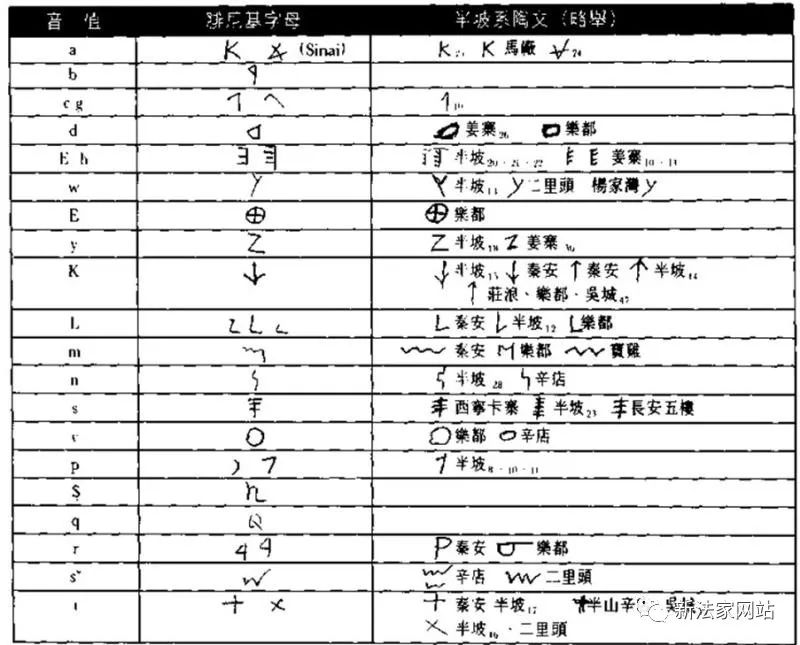 音值 腓尼基字母 半坡系陶文（略舉）
a (Sinai) 馬廠 24
b
c g 10
d 姜寨26 樂都
E h 半坡20·21·22 姜寨10·11
w 半坡 二里頭 楊家灣
E 樂都
y 半坡18 姜寨30
K 半坡15 秦安 秦安 半坡14
莊浪、樂都、吳城47
L 秦安 半坡12 樂都
m 秦安 樂都 寶雞
n 半坡28 辛店
s 西寧卡寨 半坡23 長安五樓
樂都 辛店
p 半坡8·10·11
Ṣ
q
r 秦安 樂都
š 辛店 二里頭
秦安 半坡17 半山 新法家网站
半坡16、二里頭